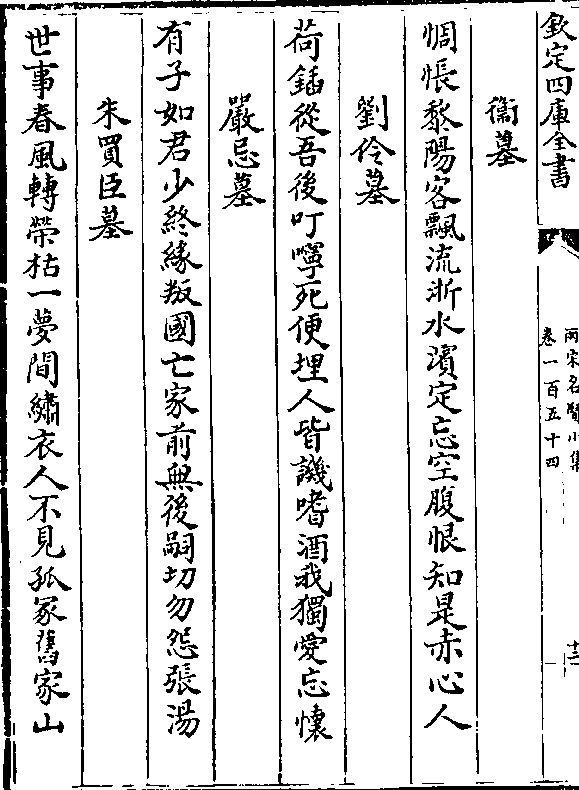 欽定四庫全書
兩宋名賢小集
卷一百五十四
十二
衞墓
惆悵黎陽客飄流浙水濱定忘空腹恨知是赤心人
劉伶墓
荷鍤從吾後叮嚀死便埋人皆譏嗜酒我獨愛忘懷
嚴忌墓
有子如君少終緣叛國亡家前無後嗣切勿怨張湯
朱買臣墓
世事春風轉榮枯一夢間繡衣人不見孤冢舊家山